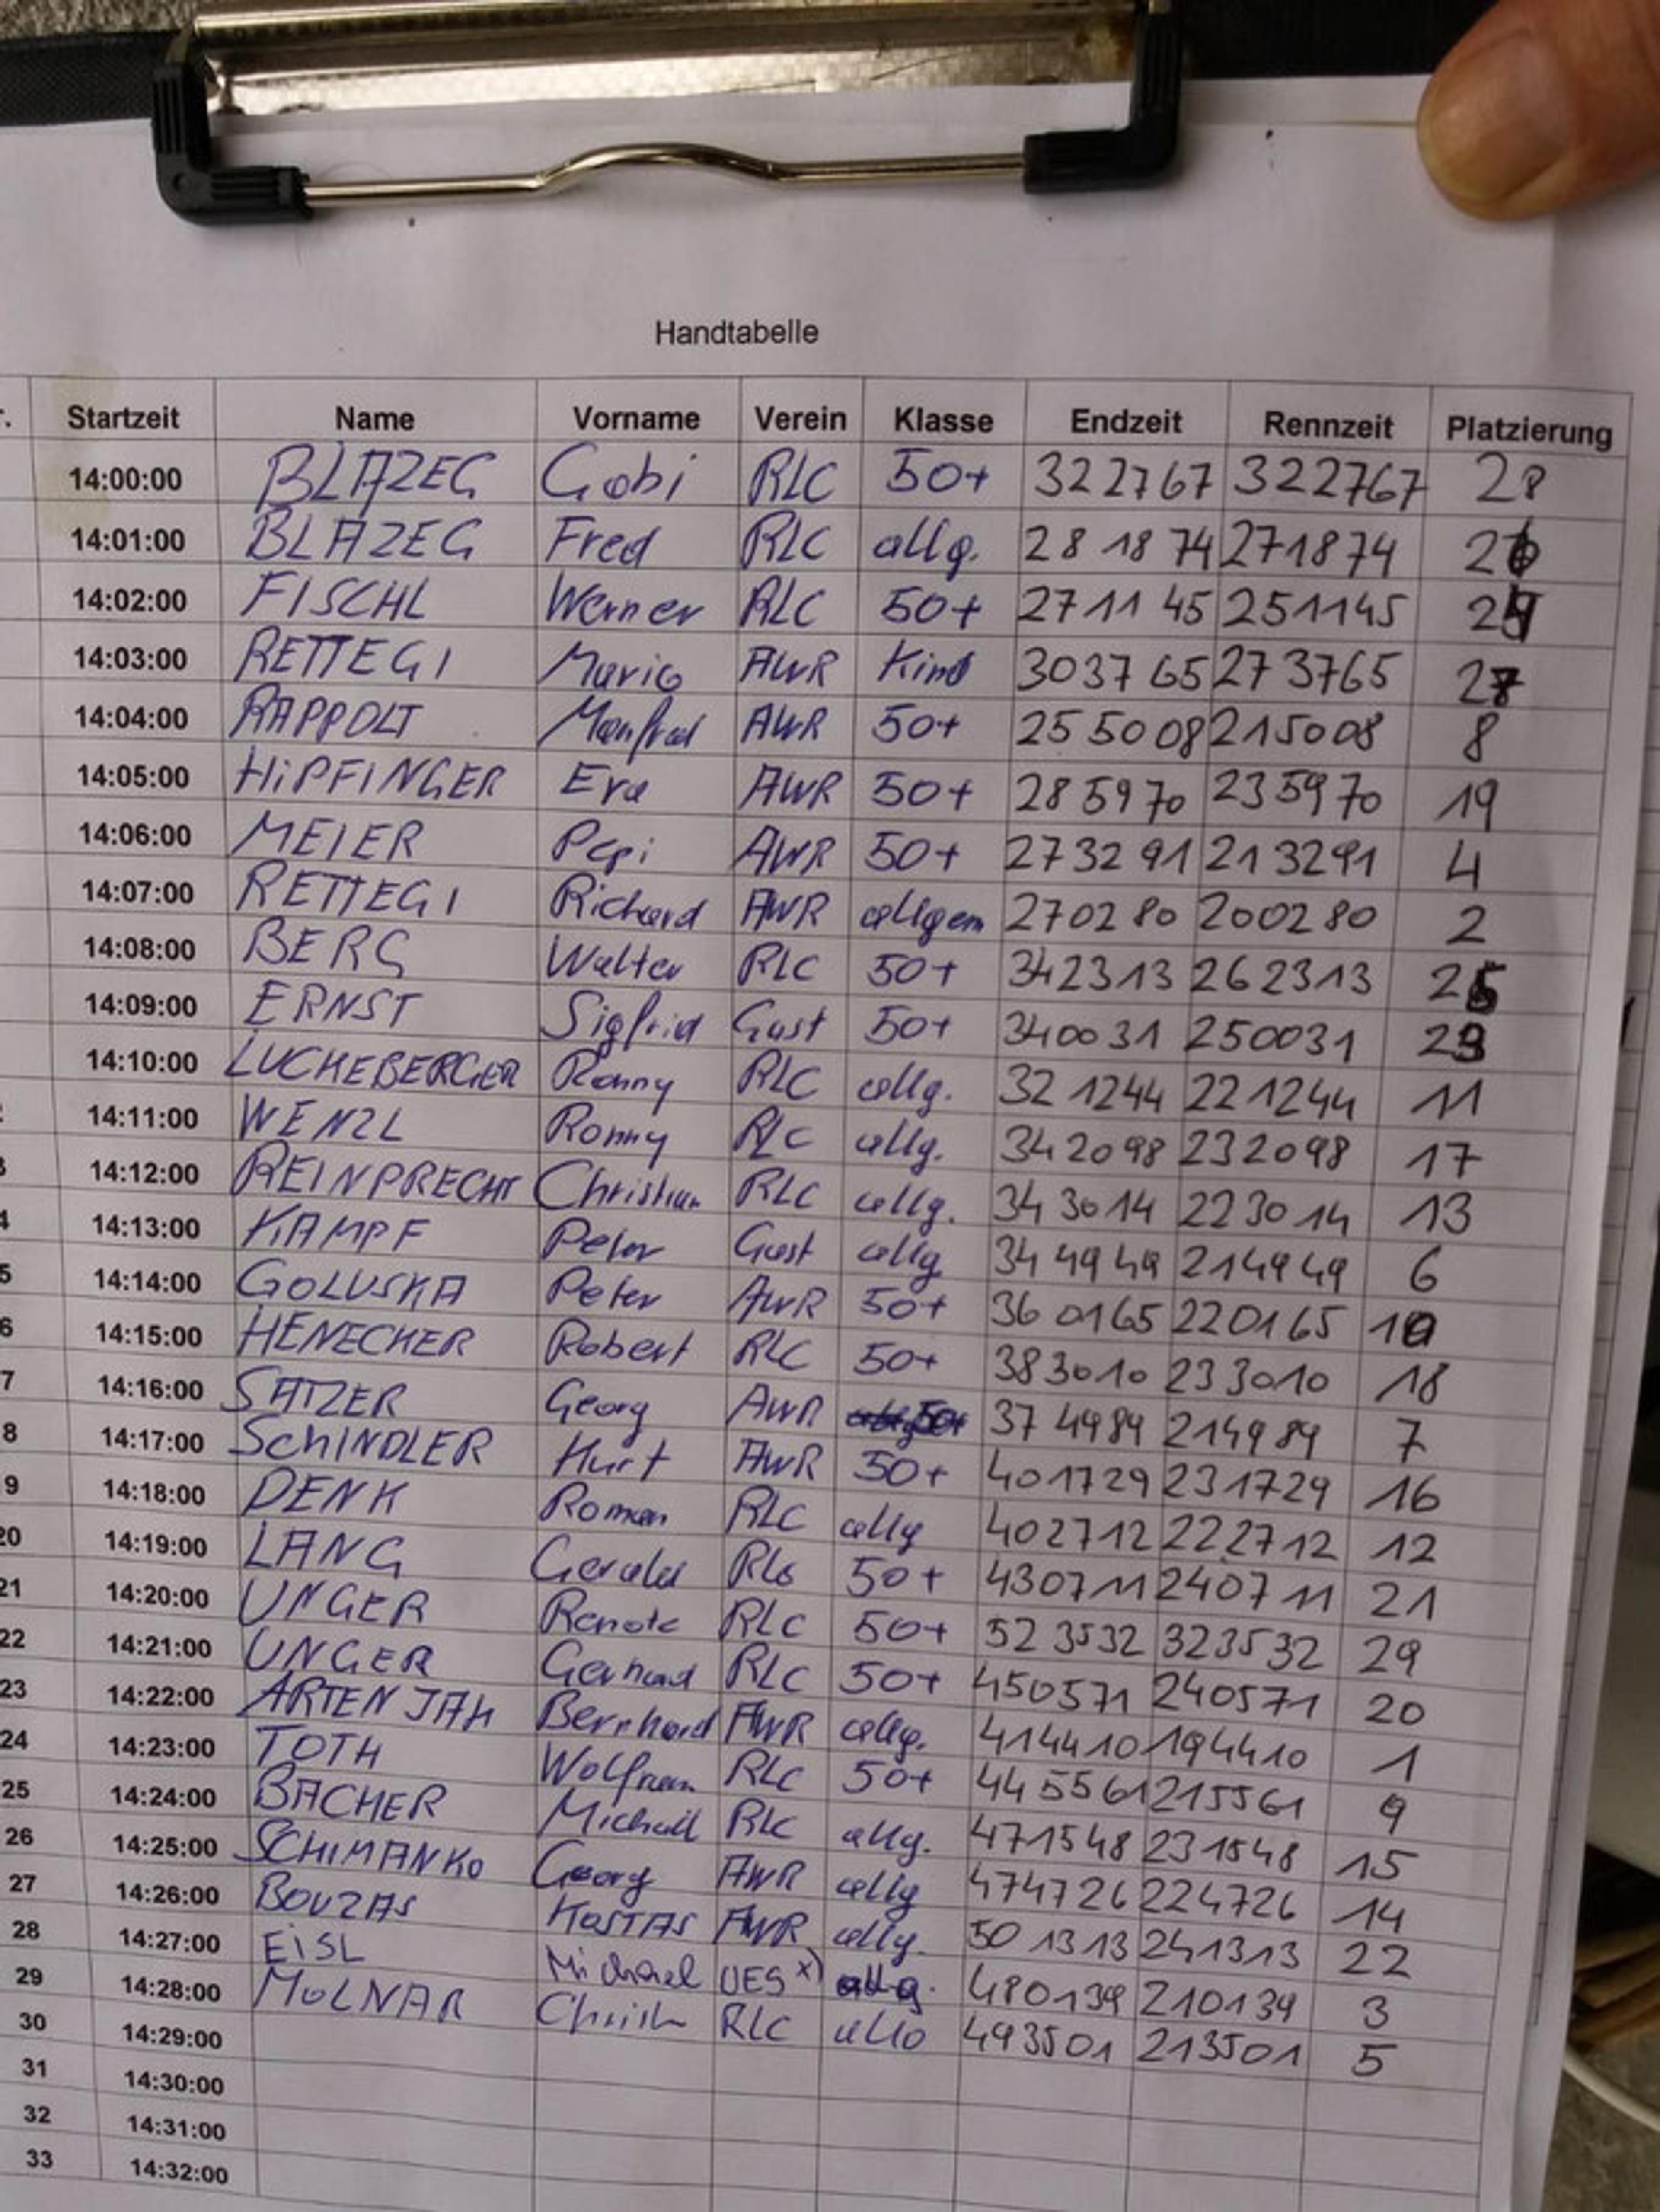 Handtabelle
r. Startzeit Name Vorname Verein Klasse Endzeit Rennzeit Platzierung
14:00:00 BLAZEG Gabi RLC 50+ 322767 322767 28
14:01:00 BLAZEG Fred RLC allg. 281874 271874 26
14:02:00 FISCHL Werner RLC 50+ 271145 251145 24
14:03:00 RETTEGI Mario AWR Kind 303765 273765 27
14:04:00 RAPPOLT Manfred AWR 50+ 255008 215008 8
14:05:00 HIPFINGER Eva AWR 50+ 285970 235970 19
14:06:00 MEIER Pepi AWR 50+ 273291 213291 4
14:07:00 RETTEGI Richard AWR allgem 270280 200280 2
14:08:00 BERG Walter RLC 50+ 342313 262313 25
14:09:00 ERNST Sigfrid Gast 50+ 340031 250031 23
14:10:00 LUCKEBERGER Ronny RLC allg. 321244 221244 11
2 14:11:00 WENZL Ronny RLC allg. 342098 232098 17
3 14:12:00 REINPRECHT Christian RLC allg. 343014 223014 13
4 14:13:00 KAMPF Peter Gast allg 344949 214949 6
5 14:14:00 GOLUSKA Peter AWR 50+ 360165 220165 10
6 14:15:00 HENECKER Robert RLC 50+ 383010 233010 18
7 14:16:00 SATZER Georg AWR 50+ 374984 214984 7
8 14:17:00 SCHINDLER Kurt AWR 50+ 401729 231729 16
9 14:18:00 DENK Roman RLC allg 402712 222712 12
20 14:19:00 LANG Gerald RLC 50+ 430711 240711 21
21 14:20:00 UNGER Renate RLC 50+ 523532 323532 29
22 14:21:00 UNGER Gerhard RLC 50+ 450571 240571 20
23 14:22:00 ARTENJAK Bernhard AWR allg. 414410 194410 1
24 14:23:00 TOTH Wolfram RLC 50+ 445561 215561 9
25 14:24:00 BACHER Michael RLC allg. 471548 231548 15
26 14:25:00 SCHIMANKO Georg AWR allg 474726 224726 14
27 14:26:00 BOUZAS KOSTAS AWR allg. 501313 241313 22
28 14:27:00 EISL Michael UES x) allg. 480139 210139 3
29 14:28:00 MOLNAR RLC allg 493501 213501 5
30 14:29:00
31 14:30:00
32 14:31:00
33 14:32:00